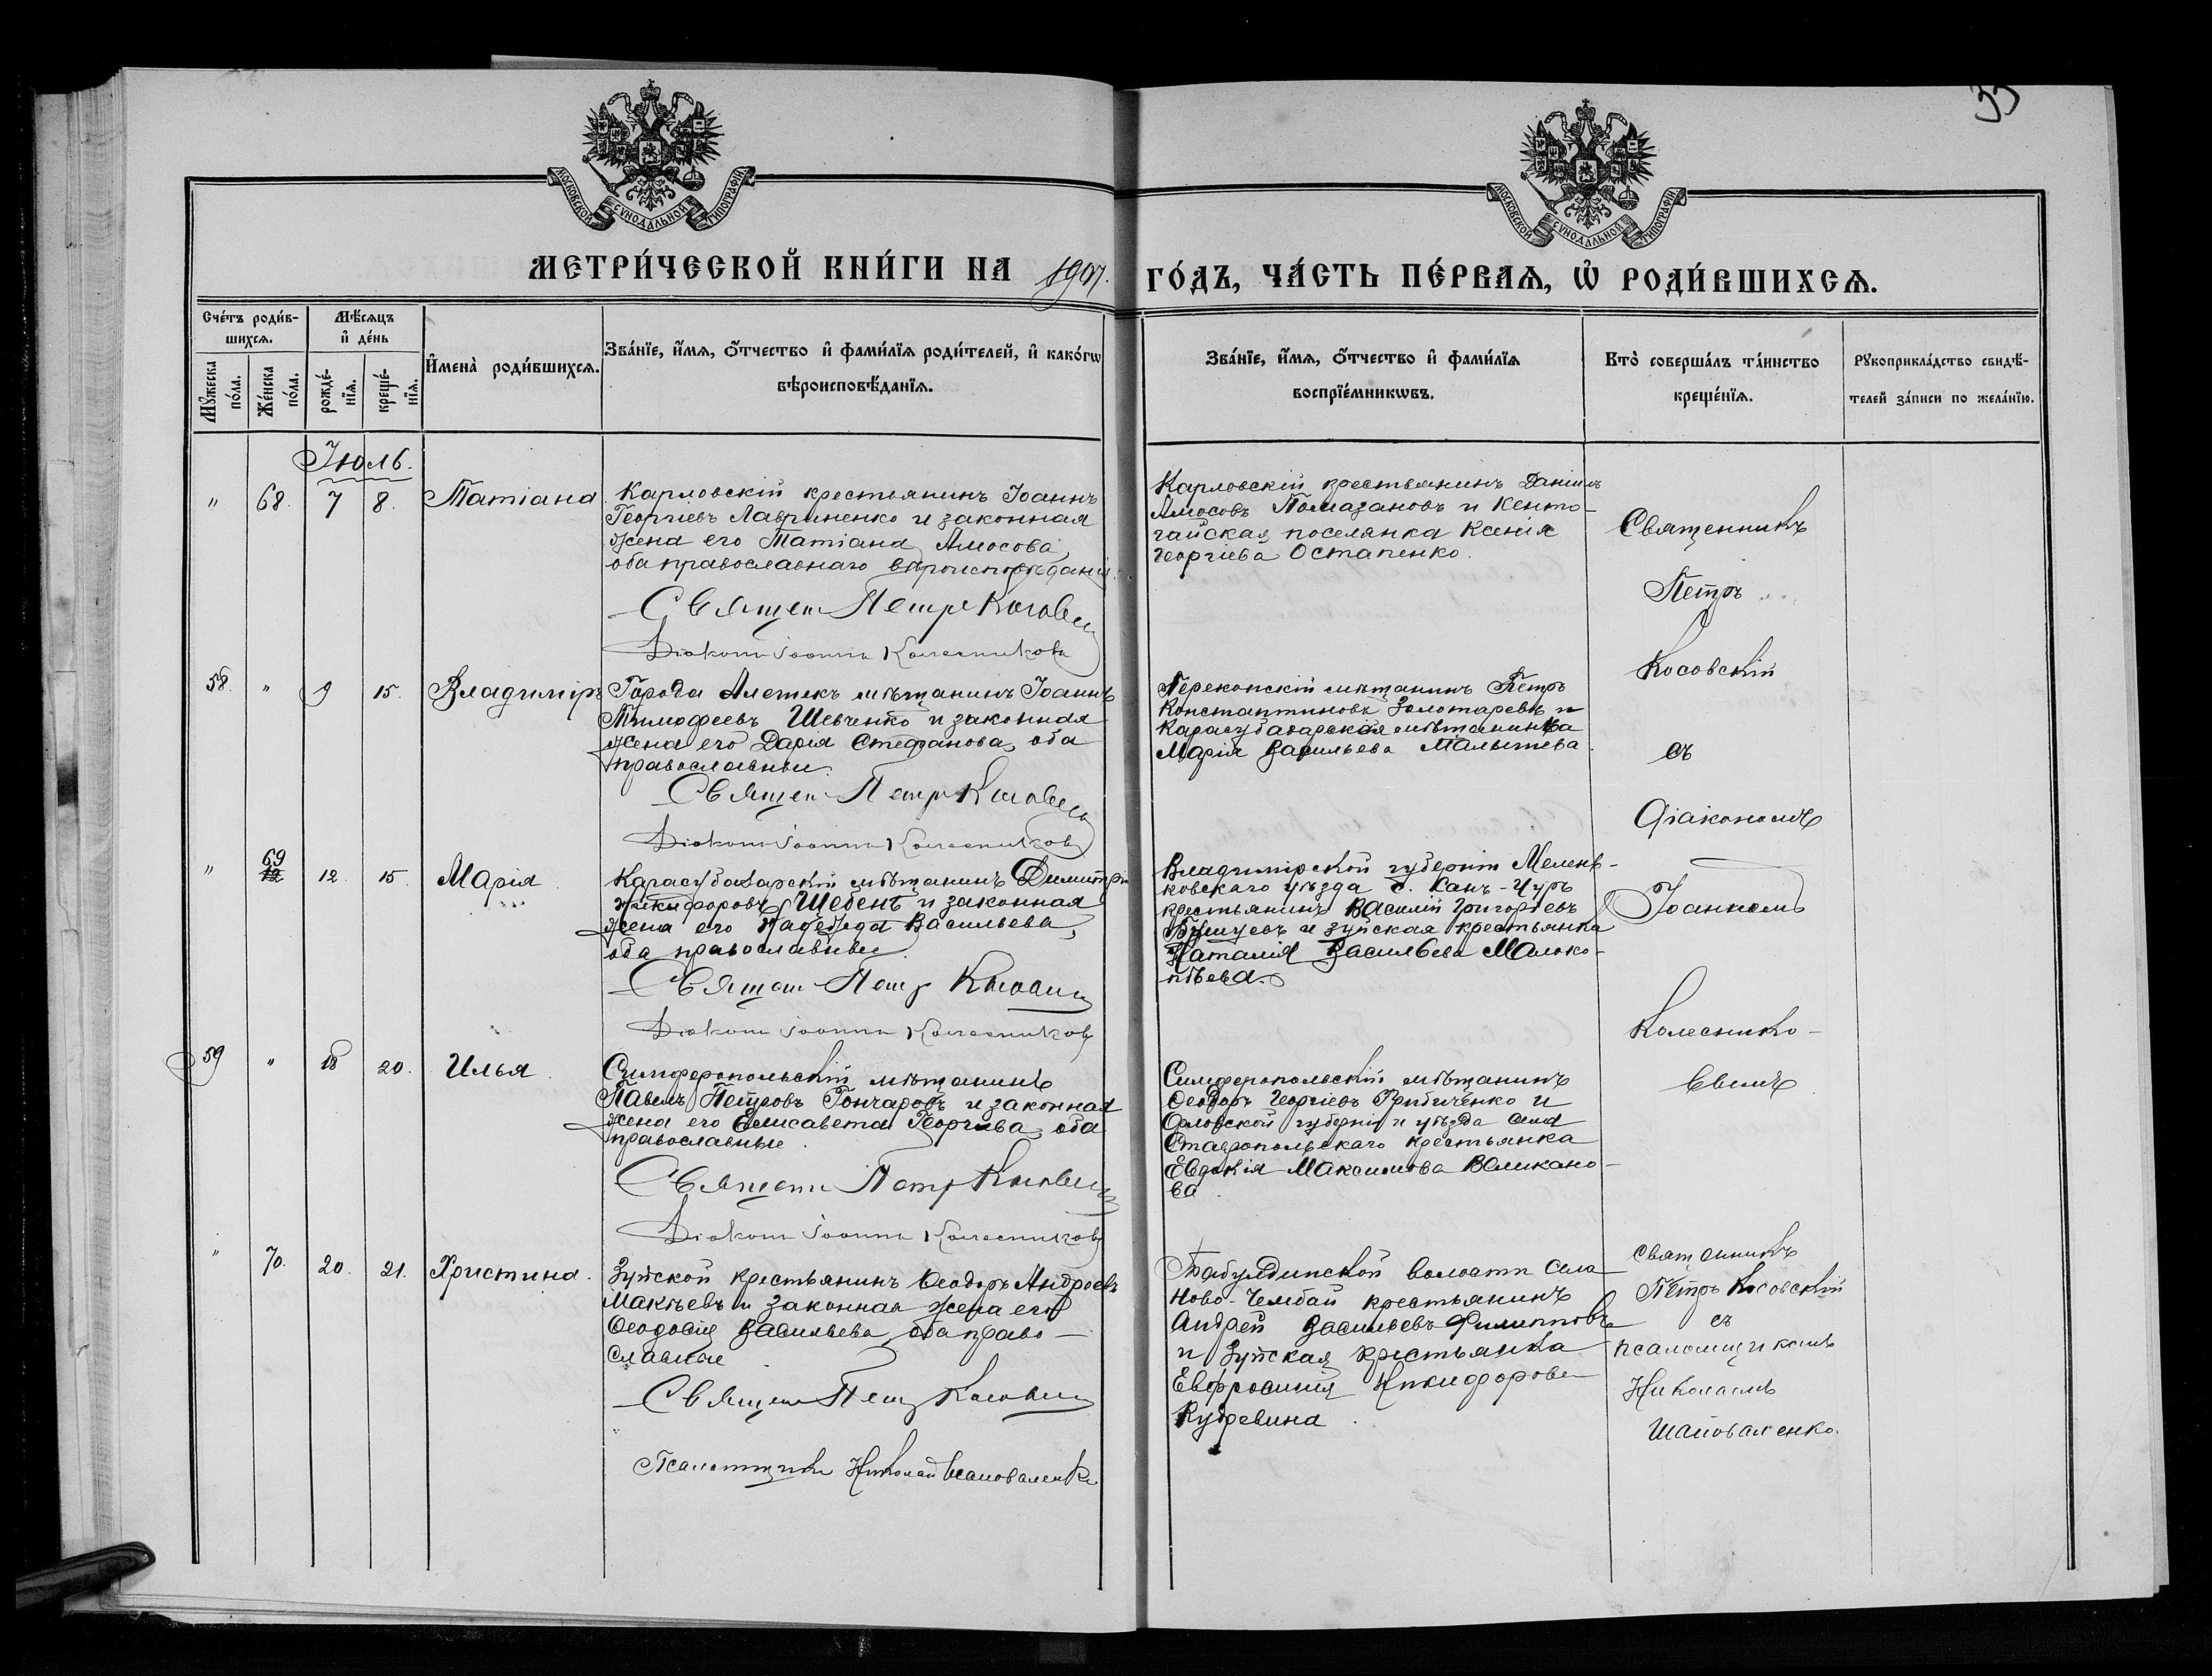 33
МОСКОВСКОЙ СѴНОДАЛЬНОЙ ТИПОГРАФІИ
МОСКОВСКОЙ СѴНОДАЛЬНОЙ ТИПОГРАФІИ
МЕТРИ́ЧЕСКОЙ КНИ́ГИ НА 1907. ГО́ДЪ, ЧА́СТЬ ПЕ́РВАѦ, Ѡ҆ РОДИ́ВШИХСѦ.
Сче́тъ роди́в-
шихсѧ.
Мꙋ́жеска по́ла.
Же́нска по́ла.
Мѣ́сѧцъ
и҆ де́нь
рожде́-
нїѧ.
креще́-
нїѧ.
И҆мена̀ роди́вшихсѧ.
Зва́нїе, и҆́мѧ, ѻ҆́тчество и҆ фами́лїѧ роди́телей, и҆ како́гѡ
вѣроисповѣ́данїѧ.
Зва́нїе, и҆́мѧ, ѻ҆́тчество и҆ фами́лїѧ
воспрїе́мникѡвъ.
Кто̀ соверша́лъ та́инство
креще́нїѧ.
Рꙋкоприкла́дство свидѣ́-
телей за́писи по жела́нїю.
Іюль.
" 68. 7 8. Татіана
Карловскій крестьянинъ Іоаннъ
Георгіевъ Лавриненко и законная
жена его Татіана Амосова,
оба православнаго вѣроисповѣданія.
Священ Петр Косовскій
Діаконъ Іоаннъ Колесниковъ
Карловскій крестьянинъ Даніилъ
Амосовъ Помазановъ и Кенто-
гайская поселянка Ксенія
Георгіева Остапенко.
Священникъ
Петръ
Косовскій
съ
Діакономъ
Іоанномъ
Колеснико-
вымъ
58. " 9 15. Владиміръ
Города Алешекъ мѣщанинъ Іоаннъ
Тимофеевъ Шевченко и законная
жена его Дарія Стефанова, оба
православные.
Священ Петр Косовскій
Діаконъ Іоаннъ Колесниковъ
Перекопскій мѣщанинъ Петръ
Константиновъ Золотаревъ и
Карасубазарская мѣщанинка
Марія Васильева Малышева.
" 69 12 12. 15. Марія
Карасубазарскій мѣщанинъ Димитрій
Никифоровъ Шебенъ и законная
жена его Надежда Васильева,
оба православные.
Священ Петр Косовскій
Діаконъ Іоаннъ Колесниковъ
Владимірской губерніи Меленк-
ковскаго уѣзда с. Канъ-Чуръ
крестьянинъ Василій Григорьевъ
и Зуйская крестьянка
Наталія Васильева Малоко-
пѣева.
59 " 18 20. Илья.
Симферопольскій мѣщанинъ
Павелъ Петровъ Гончаровъ и законная
жена его Елисавета Георгіева, оба
православные.
Священ Петр Косовскій
Діаконъ Іоаннъ Колесниковъ
Симферопольскій мѣщанинъ
Ѳеодоръ Георгіевъ Грибиченко и
Орловской губерніи и уѣзда села
Ставропольскаго крестьянка
Евдокія Максимова Великано-
ва.
" 70. 20. 21. Христина.
Зуйской крестьянинъ Ѳеодоръ Андреевъ
Макѣевъ и законная жена его
Ѳеодосія Васильева, оба право-
славные.
Священ Петр Косовскій
Псаломщикъ Николай Шаповаленко
Табулдинской волости села
Ново-Чембай крестьянинъ
Андрей Васильевъ Филипповъ
и Зуйская крестьянка
Евфросинія Никифорова
Кудревина.
Священникъ
Петръ Косовскій
съ
псаломщикомъ
Николаемъ
Шаповаленко.